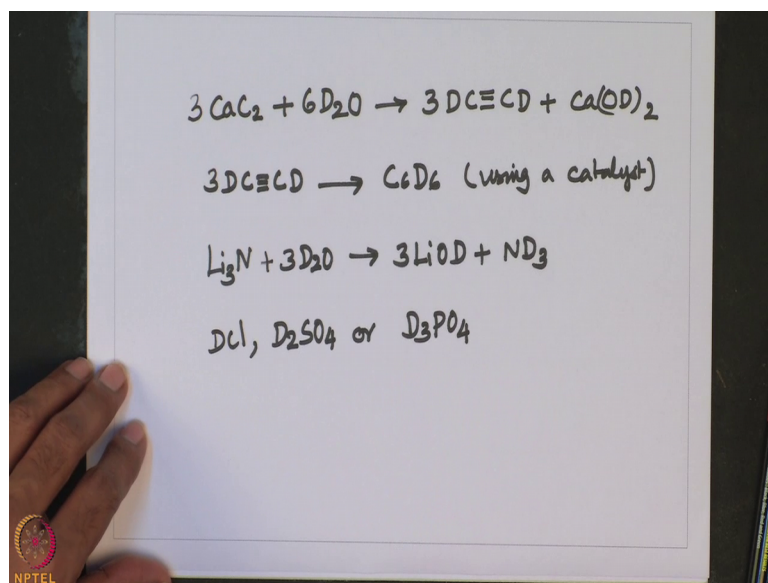 3 CaC2 + 6D2O → 3 DC≡CD + Ca(OD)2
3DC≡CD → C6D6 (using a catalyst)
Li3N + 3D2O → 3LiOD + ND3
DCl, D2SO4 or D3PO4
NPTEL